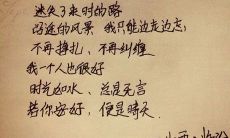 迷失了来时的路
沿途的风景 我只能边走边忘
不再挣扎、不再纠缠
我一个人也很好
时光如水、总是无言
若你安好、便是晴天.